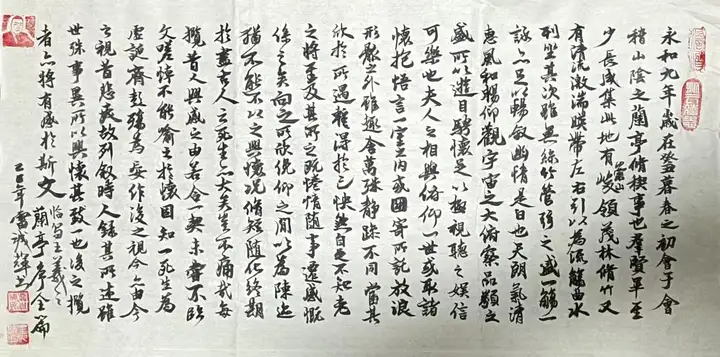 永和九年歲在癸丑暮春之初會于會
稽山陰之蘭亭脩稧事也羣賢畢至
少長咸集此地有崇山峻領茂林脩竹又
有清流激湍暎帶左右引以為流觴曲水
列坐其次雖無絲竹管弦之盛一觴一
詠亦足以暢敘幽情是日也天朗氣清
惠風和暢仰觀宇宙之大俯察品類之
盛所以遊目騁懷足以極視聽之娛信
可樂也夫人之相與俯仰一世或取諸
懷抱悟言一室之內或因寄所託放浪
形骸之外雖趣舍萬殊靜躁不同當其
欣於所遇暫得於己快然自足不知老
之將至及其所之既惓情隨事遷感慨
係之矣向之所欣俛仰之間以為陳迹
猶不能不以之興懷況脩短隨化終期
於盡古人云死生亦大矣豈不痛哉每
攬昔人興感之由若合一契未嘗不臨
文嗟悼不能喻之於懷固知一死生為
虛誕齊彭殤為妄作後之視今亦由今
之視昔悲夫故列敘時人錄其所述雖
世殊事異所以興懷其致一也後之攬
者亦將有感於斯文
臨寫王羲之
蘭亭序全篇
年雷成輝